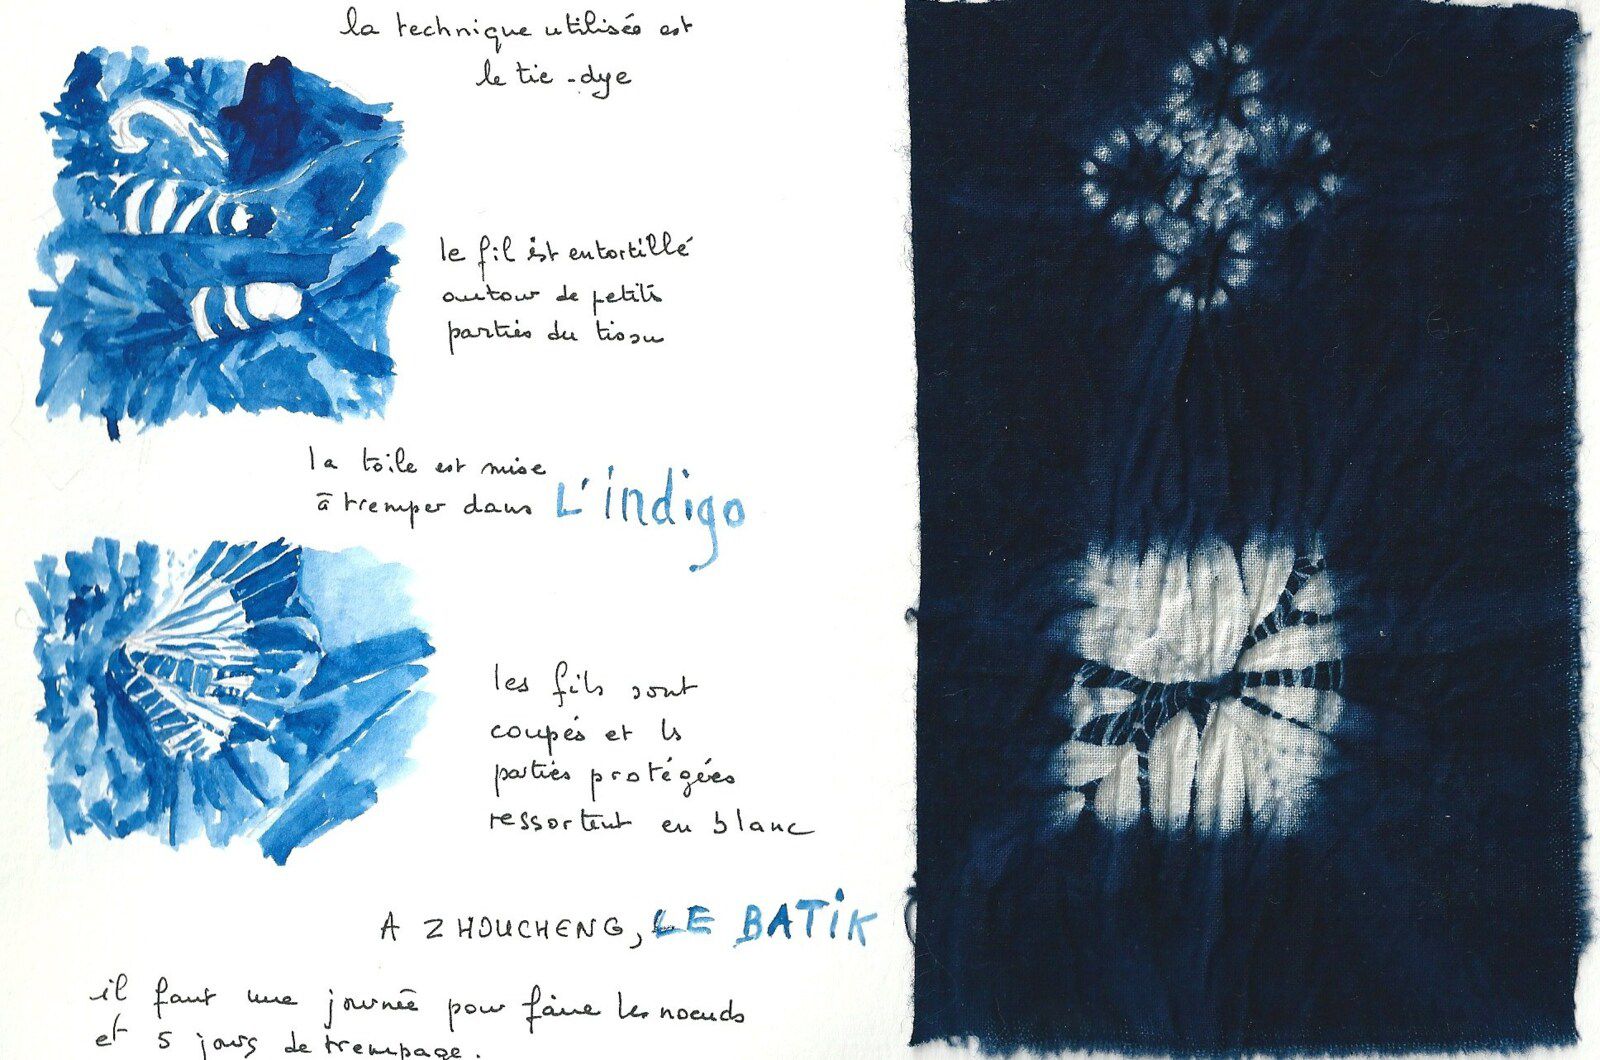 la technique utilisée est
le tie-dye
le fil est entortillé
autour de petites
parties du tissu
la toile est mise
à tremper dans L'indigo
les fils sont
coupés et ls
parties protégées
ressortent en blanc
A ZHOUCHENG, LE BATIK
il faut une journée pour faire les noeuds
et 5 jours de trempage.